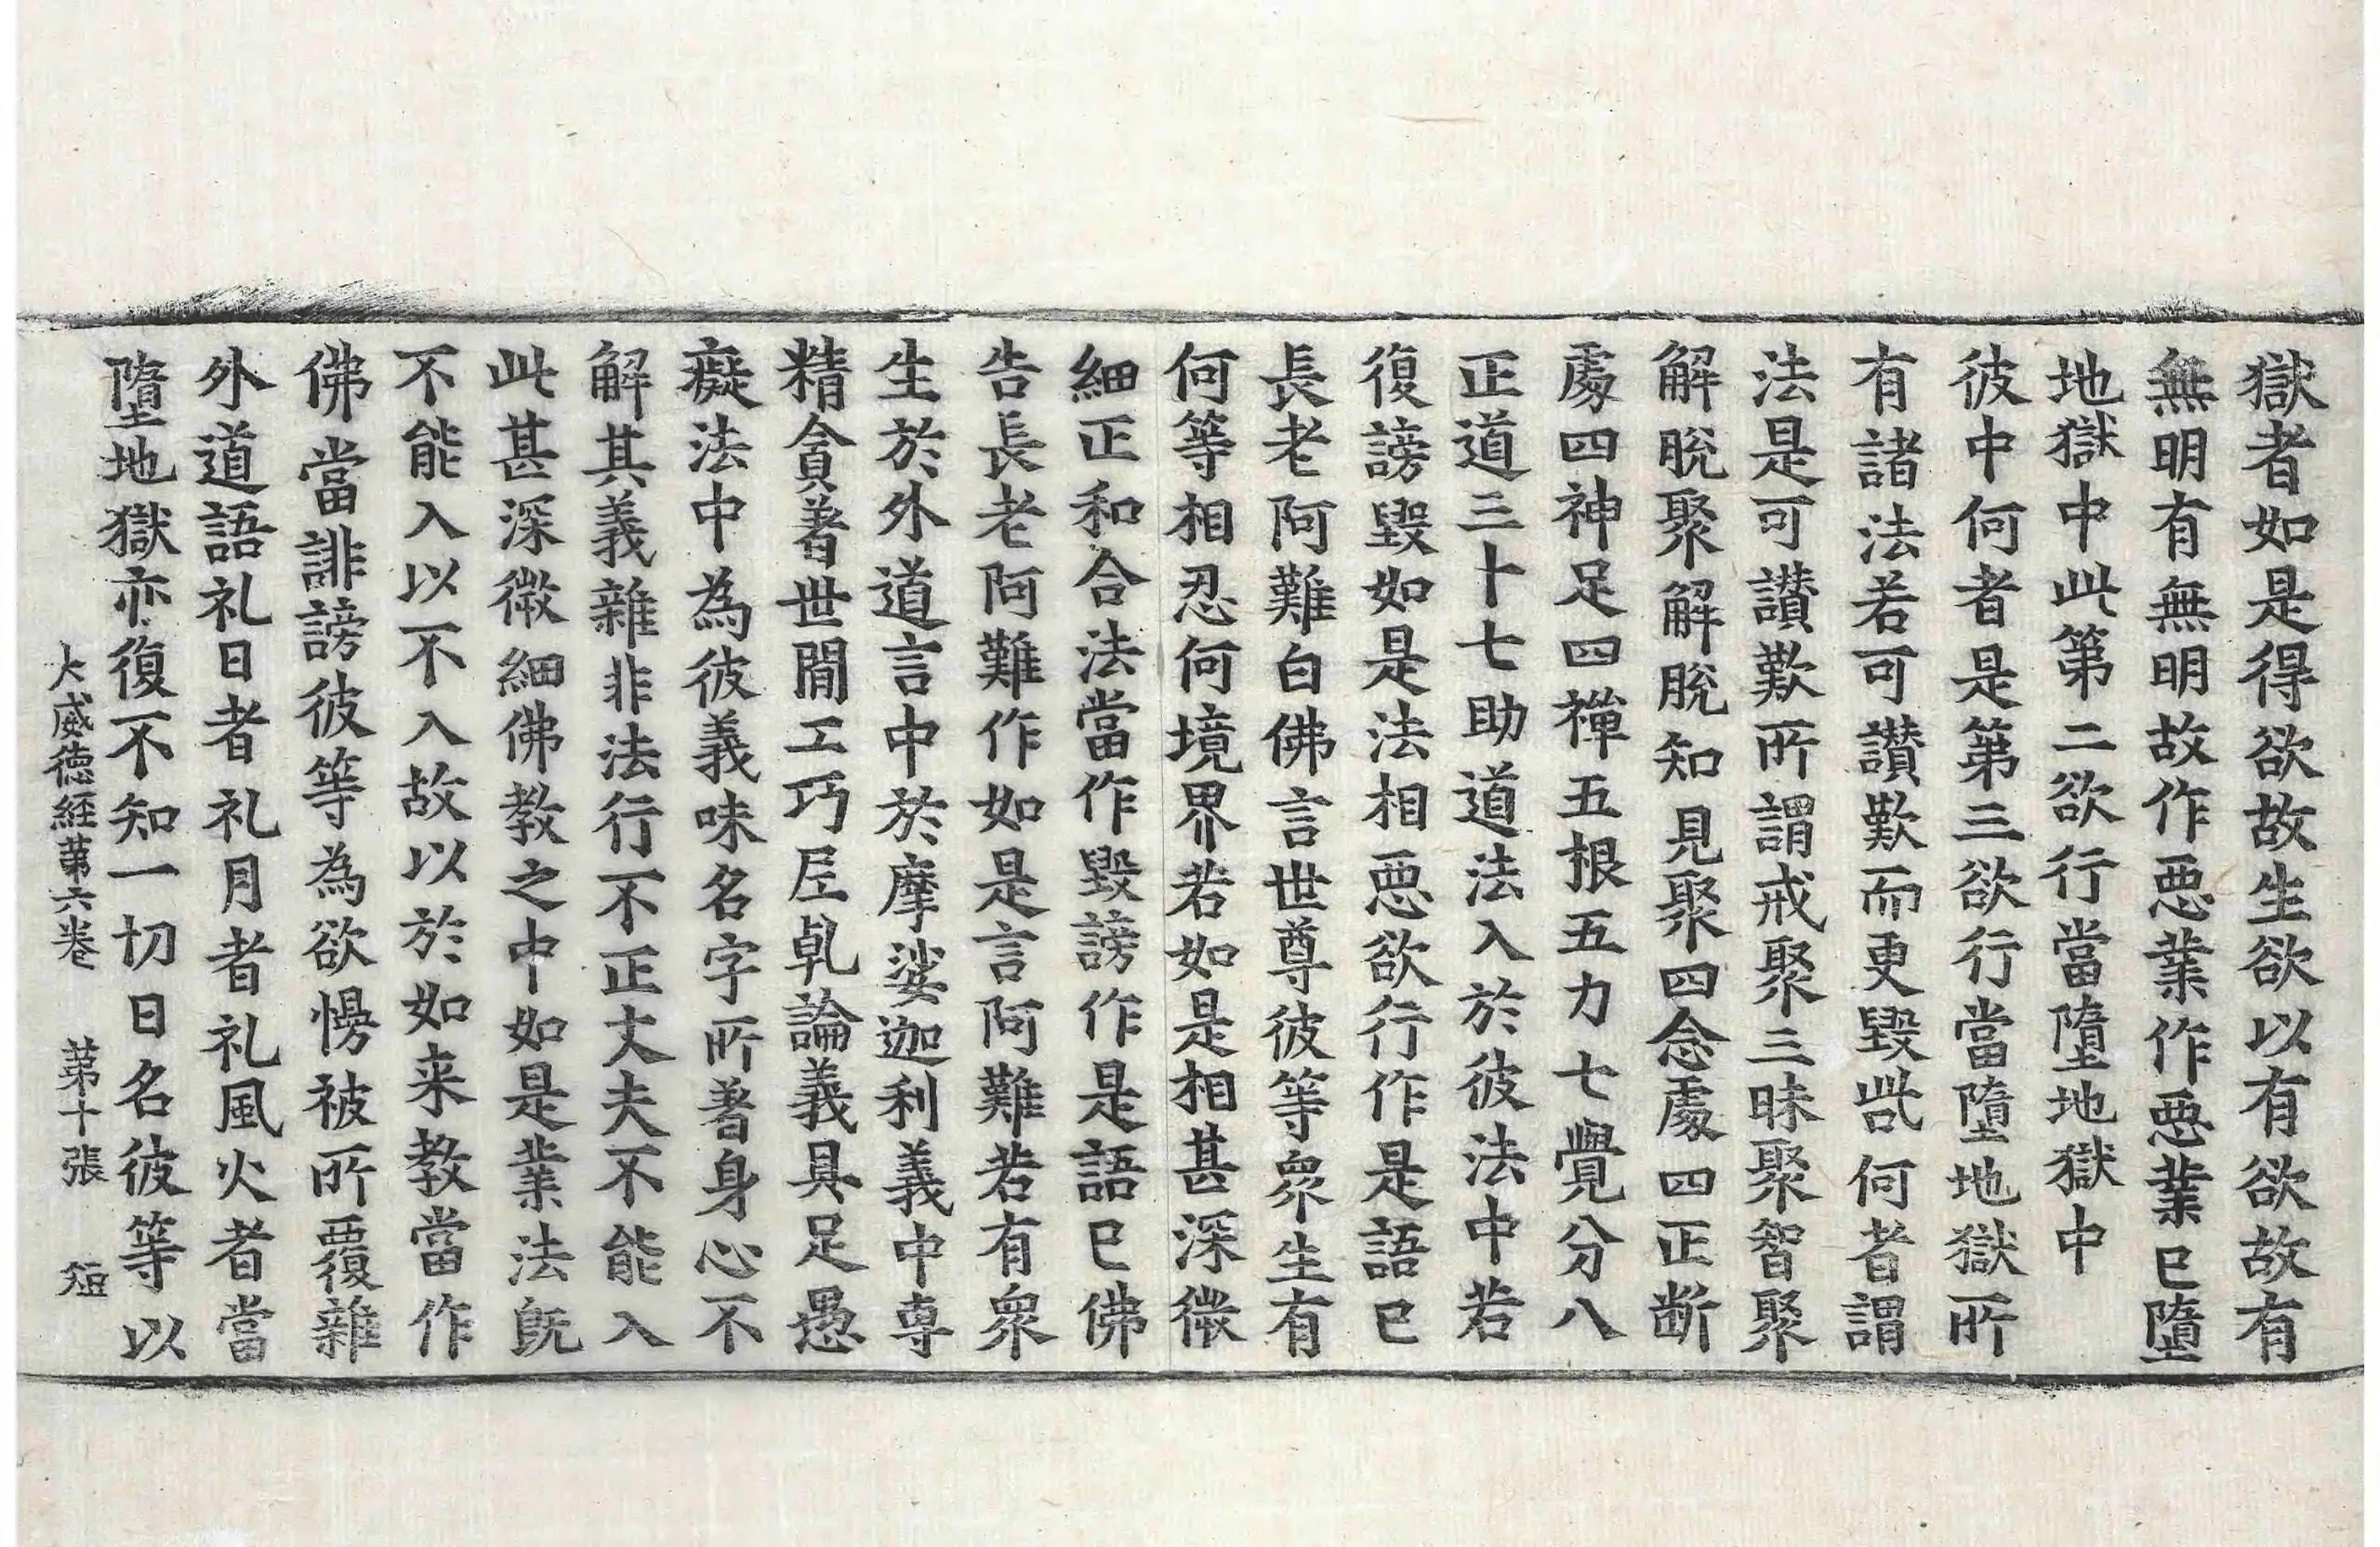 獄者如是得欲故生欲以有欲故有
無明有無明故作惡業作惡業已墮
地獄中此第二欲行當墮地獄中
彼中何者是第三欲行當墮地獄所
有諸法若可讃歎而更毀呰何者謂
法是可讃歎所謂戒聚三昧聚智聚
解脫聚解脫知見聚四念處四正斷
處四神足四禪五根五力七覺分八
正道三十七助道法入於彼法中若
復謗毀如是法相惡欲行作是語已
長老阿難白佛言世尊彼等衆生有
何等相忍何境界若如是相甚深微
細正和合法當作毀謗作是語已佛
告長老阿難作如是言阿難若有衆
生於外道言中於摩娑迦利義中專
精貪著世間工巧㞐乹論義具足愚
癡法中為彼義味名字所著身心不
解其義雜非法行不正丈夫不能入
此甚深微細佛教之中如是業法既
不能入以不入故以於如来教當作
佛當誹謗彼等為欲慢被所覆雜
外道語礼日者礼月者礼風火者當
墮地獄亦復不知一切日名彼等以
大威德経第六卷　第十張　短